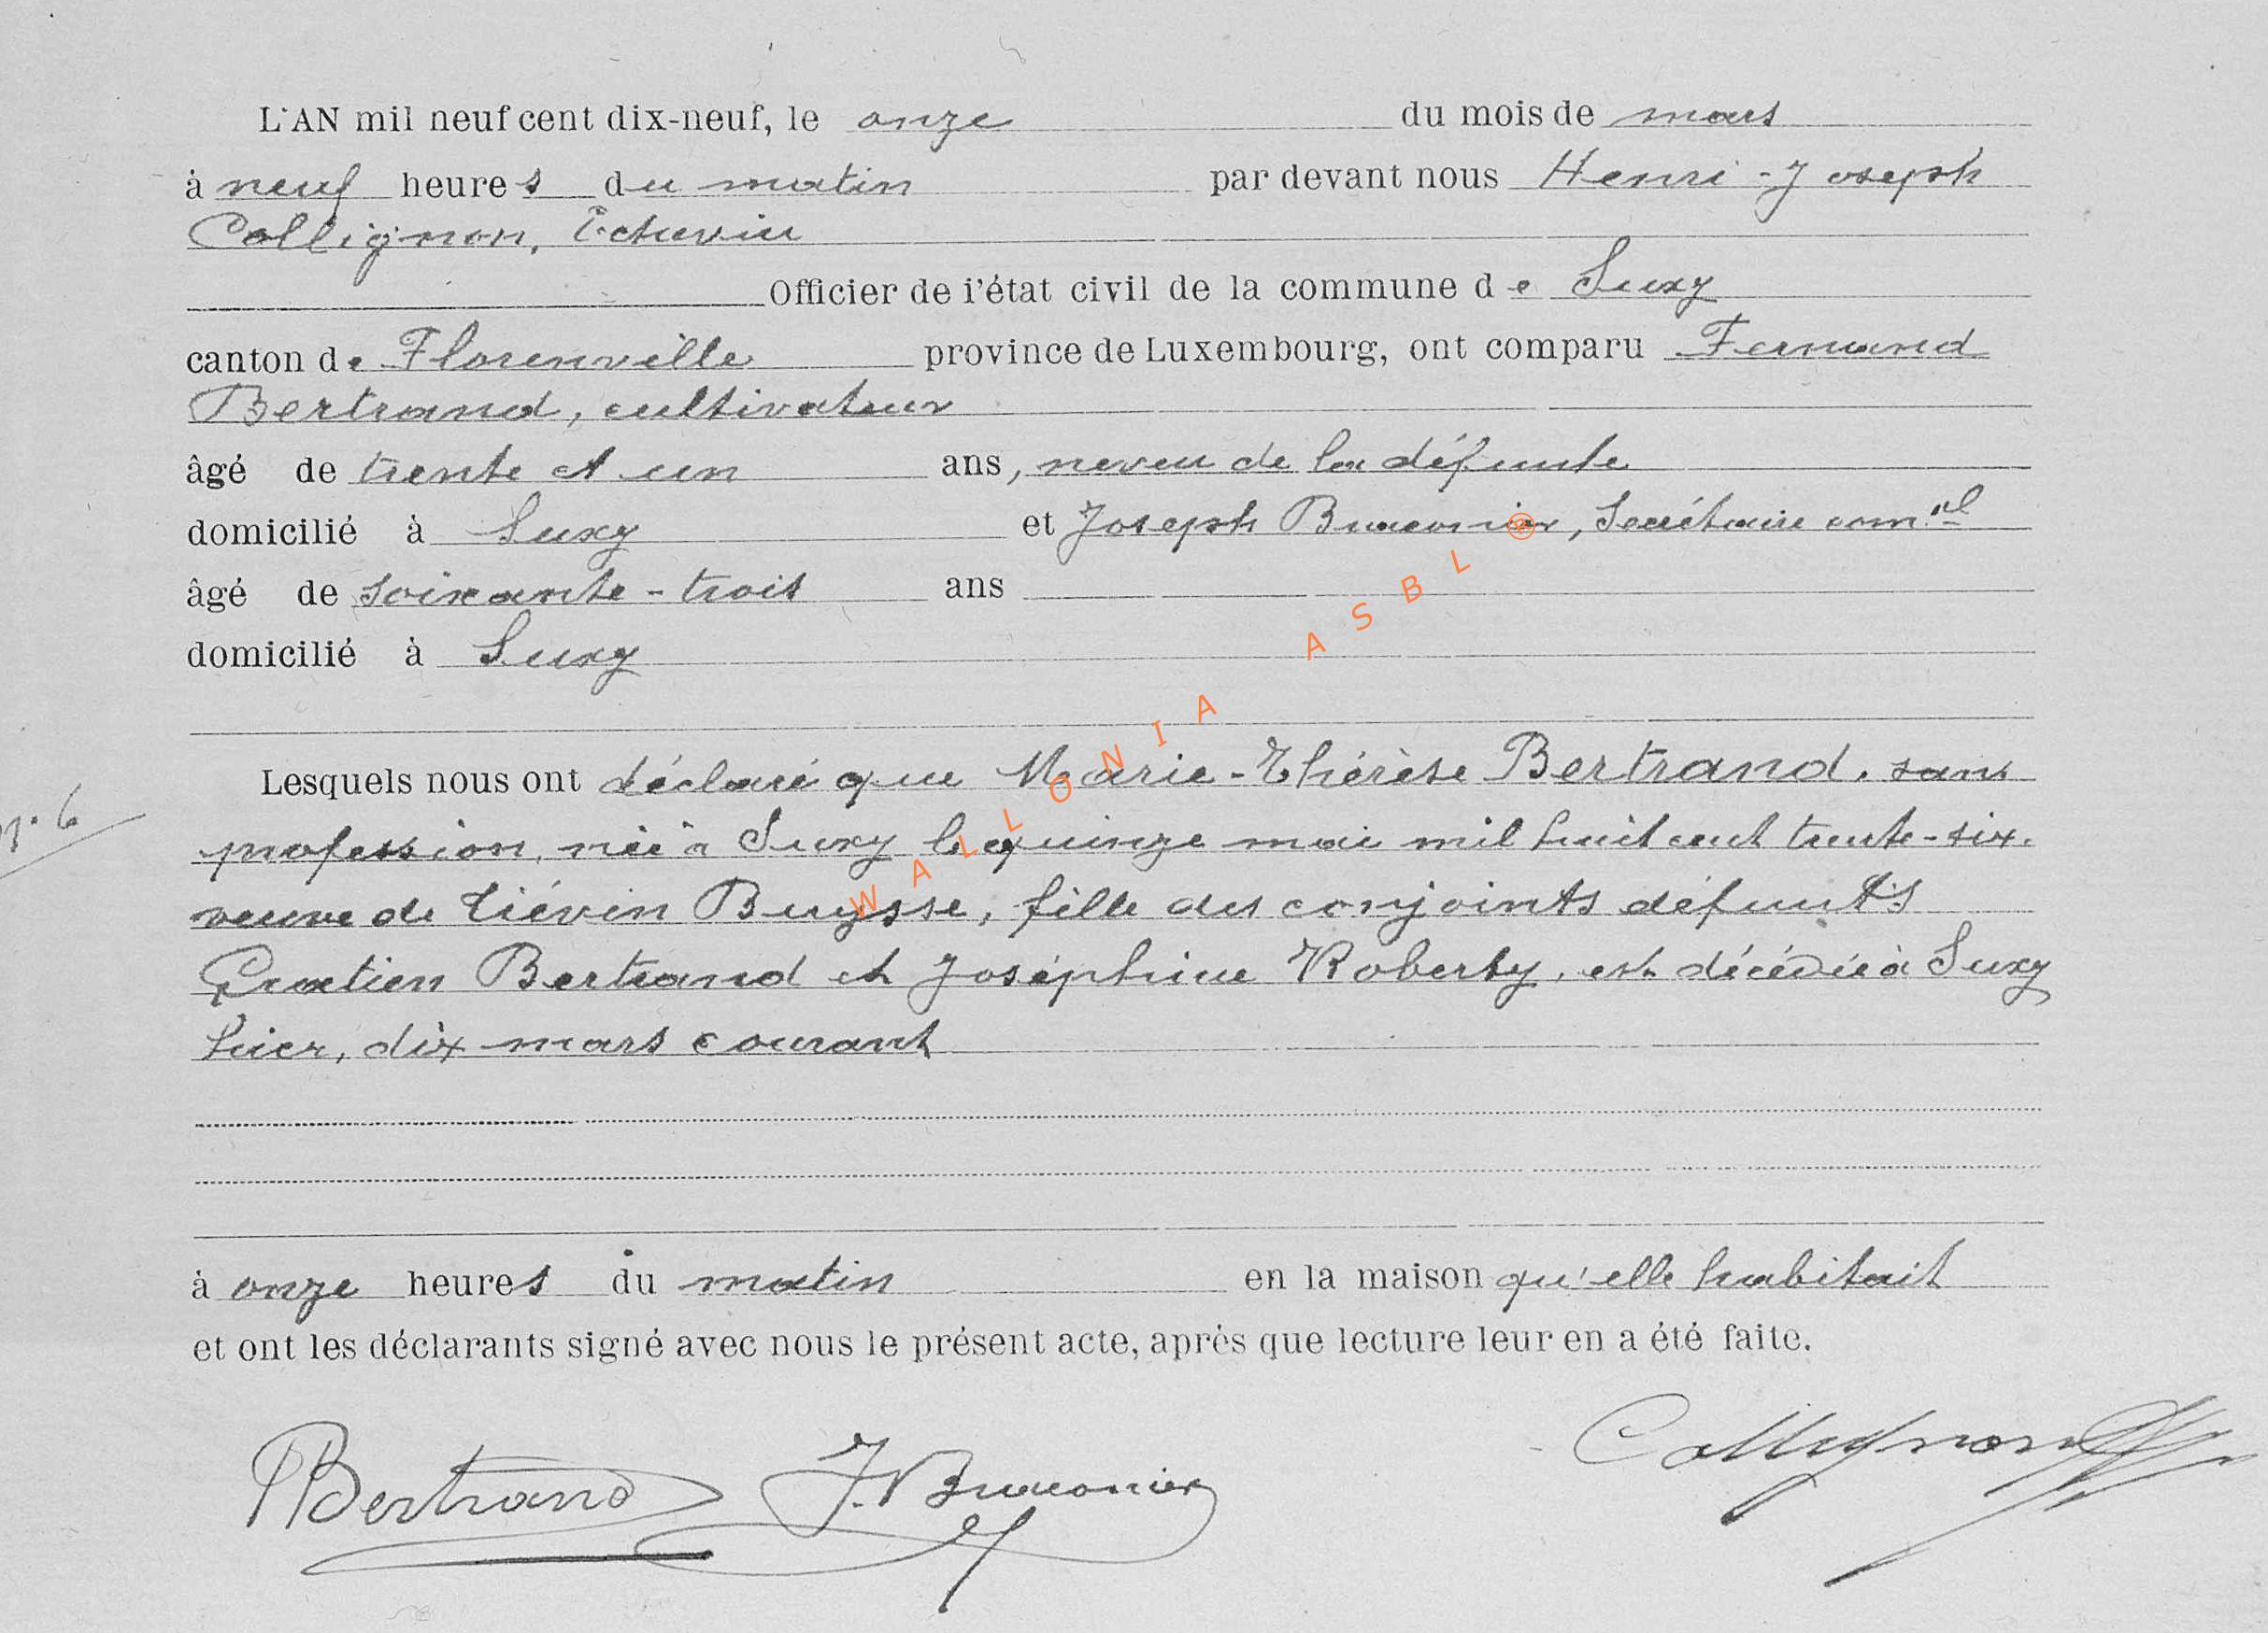 L'AN mil neuf cent dix-neuf, le onze du mois de mars
à neuf heures du matin par devant nous Henri-Joseph
Collignon, Echevin
Officier de l'état civil de la commune de Suxy
canton de Florenville province de Luxembourg, ont comparu Fernand
Bertrand, cultivateur
âgé de trente et un ans, neveu de la défunte
domicilié à Suxy et Joseph Braconnier, Secrétaire com.al
âgé de soixante-trois ans
domicilié à Suxy
Lesquels nous ont déclaré que Marie-Thérèse Bertrand, sans
n° 6
profession, née à Suxy le quinze mai mil huit cent trente-six.
veuve de Liévin Buysse, fille des conjoints défunts
Gratien Bertrand et Joséphine Roberty, est décédée à Suxy
hier, dix mars courant
à onze heures du matin en la maison qu'elle habitait
et ont les déclarants signé avec nous le présent acte, après que lecture leur en a été faite.
Bertrand J. Braconnier Collignon
WALLONIA ASBL ®